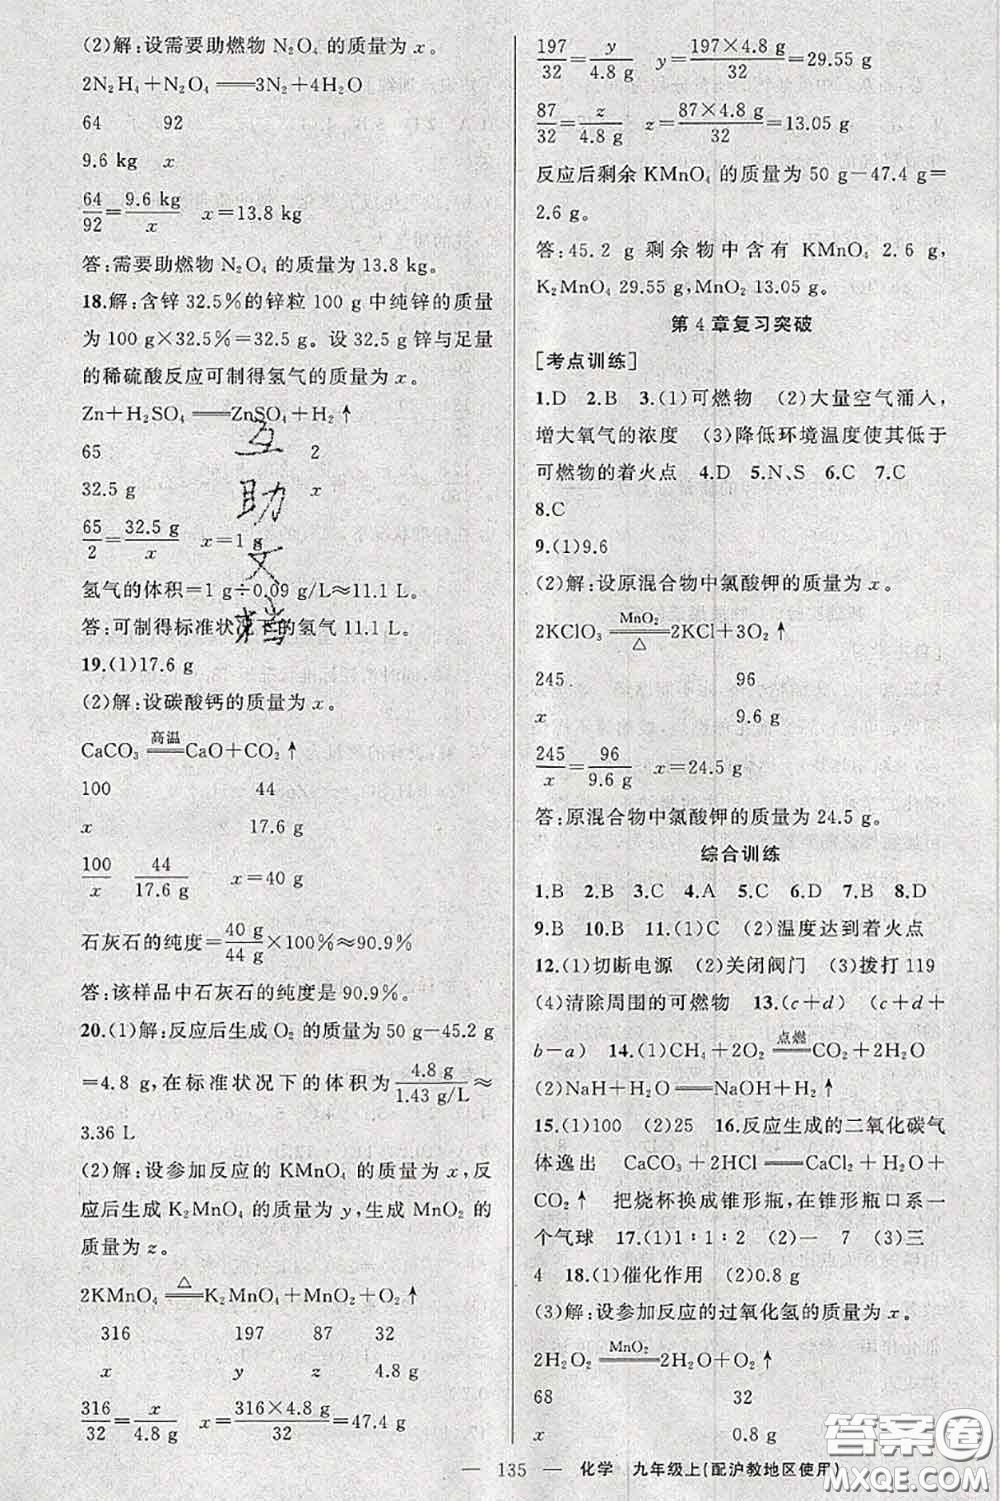 (2)解:设需要助燃物 N₂O₄ 的质量为 x。
2N₂H₄+N₂O₄══3N₂+4H₂O
64 92
9.6 kg x
64/92=9.6 kg/x x=13.8 kg
答:需要助燃物 N₂O₄ 的质量为 13.8 kg。
18.解:含锌 32.5%的锌粒 100 g 中纯锌的质量
为 100 g×32.5%=32.5 g。设 32.5 g 锌与足量
的稀硫酸反应可制得氢气的质量为 x。
Zn+H₂SO₄══ZnSO₄+H₂↑
65 2
32.5 g x
65/2=32.5 g/x x=1 g
氢气的体积=1 g÷0.09 g/L≈11.1 L
答:可制得标准状况下的氢气 11.1 L。
19.(1)17.6 g
(2)解:设碳酸钙的质量为 x。
CaCO₃ ══高温══ CaO+CO₂↑
100 44
x 17.6 g
100/x 44/17.6 g x=40 g
石灰石的纯度=40 g/44 g×100%≈90.9%
答:该样品中石灰石的纯度是 90.9%。
20.(1)解:反应后生成 O₂ 的质量为 50 g−45.2 g
=4.8 g,在标准状况下的体积为 4.8 g/1.43 g/L ≈
3.36 L
(2)解:设参加反应的 KMnO₄ 的质量为 x,反
应后生成 K₂MnO₄ 的质量为 y,生成 MnO₂ 的
质量为 z。
2KMnO₄ ══△══ K₂MnO₄+MnO₂+O₂↑
316 197 87 32
x y z 4.8 g
316/32=x/4.8 g x=316×4.8 g/32=47.4 g
197/32=y/4.8 g y=197×4.8 g/32=29.55 g
87/32=z/4.8 g z=87×4.8 g/32=13.05 g
反应后剩余 KMnO₄ 的质量为 50 g−47.4 g=
2.6 g。
答:45.2 g 剩余物中含有 KMnO₄ 2.6 g,
K₂MnO₄ 29.55 g,MnO₂ 13.05 g。
第 4 章复习突破
[考点训练]
1.D 2.B 3.(1)可燃物 (2)大量空气涌入,
增大氧气的浓度 (3)降低环境温度使其低于
可燃物的着火点 4.D 5.N、S 6.C 7.C
8.C
9.(1)9.6
(2)解:设原混合物中氯酸钾的质量为 x。
2KClO₃ ══MnO₂/△══ 2KCl+3O₂↑
245 96
x 9.6 g
245/x=96/9.6 g x=24.5 g
答:原混合物中氯酸钾的质量为 24.5 g。
综合训练
1.B 2.B 3.C 4.A 5.C 6.D 7.B 8.D
9.B 10.B 11.(1)C (2)温度达到着火点
12.(1)切断电源 (2)关闭阀门 (3)拨打 119
(4)清除周围的可燃物 13.(c+d) (c+d+
b−a) 14.(1)CH₄+2O₂ ══点燃══ CO₂+2H₂O
(2)NaH+H₂O══NaOH+H₂↑
15.(1)100 (2)25 16.反应生成的二氧化碳气
体逸出 CaCO₃+2HCl══CaCl₂+H₂O+
CO₂↑ 把烧杯换成锥形瓶,在锥形瓶口系一
个气球 17.(1)1∶1∶2 (2)一 7 (3)三
4 18.(1)催化作用 (2)0.8 g
(3)解:设参加反应的过氧化氢的质量为 x。
2H₂O₂ ══MnO₂══ 2H₂O+O₂↑
68 32
x 0.8 g
互
助
文
档
— 135 — 化学 九年级上(配沪教地区使用)
答案圈
MXQE.COM